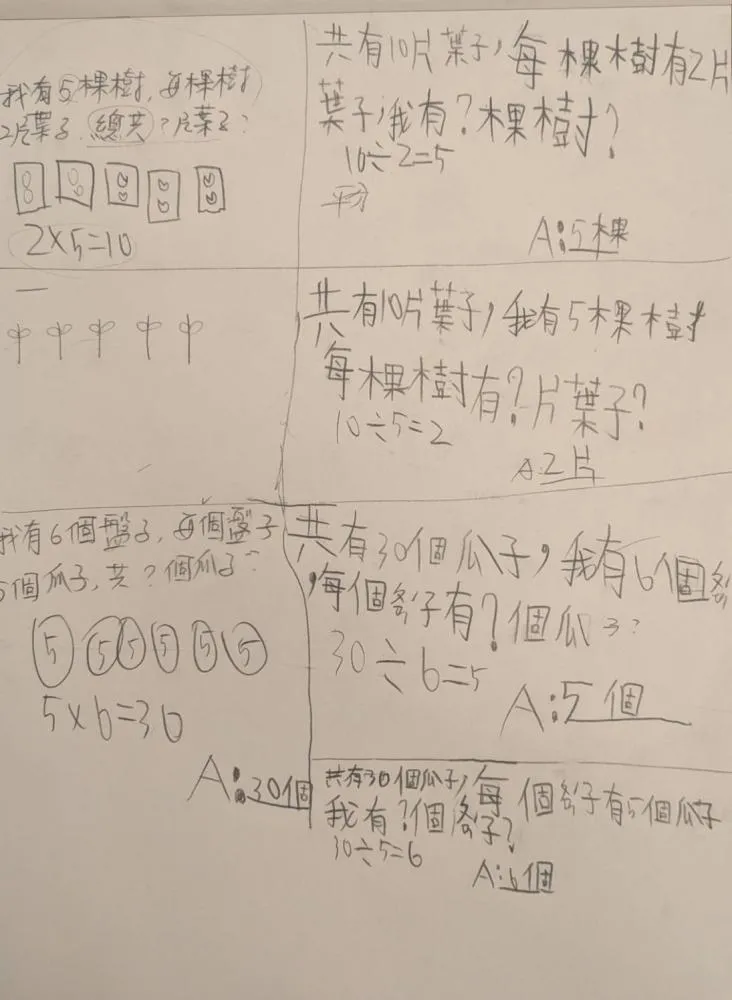 我有5棵樹,每棵樹
2片葉子.總共?片葉子?
8 8
2×5=10
共有10片葉子,每棵樹有2片
葉子,我有?棵樹?
10÷2=5
平分
A:5棵
共有10片葉子,我有5棵樹
每棵樹有?片葉子?
10÷5=2
A.2片
我有6個盤子,每個盤子
5個瓜子,共?個瓜子?
5 5 5 5 5 5
5×6=30
A:30個
共有30個瓜子,我有6個
,每個子有?個瓜子?
30÷6=5
A:5個
共有30個瓜子,每個子有5個瓜子
我有?個子?
30÷5=6
A:6個